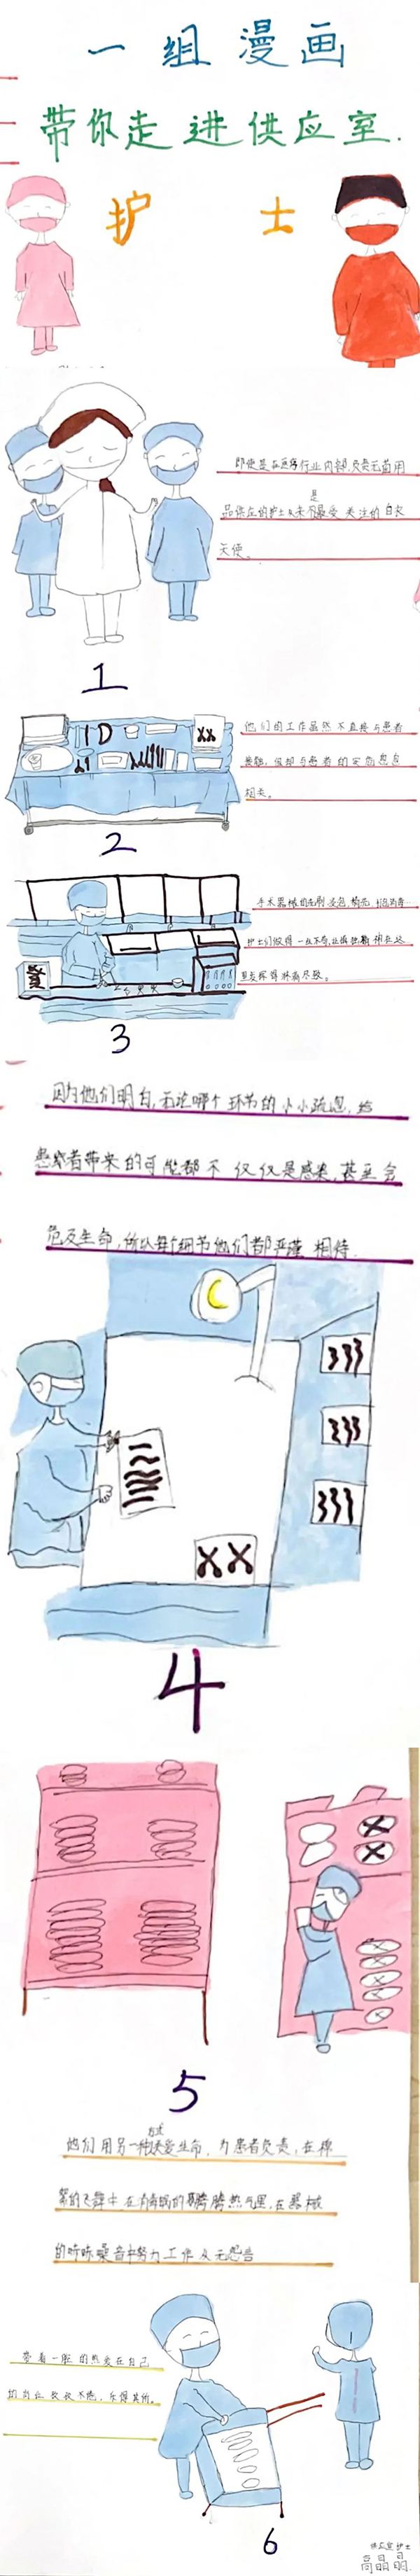 一组漫画
带你走进供应室.
护 士
即使是在医疗行业内部,负责无菌用
品供应的护士从来不是最受关注的白衣
天使。
1
他们的工作虽然不直接与患者
接触,但却与患者的安危息息
相关。
2
手术器械的洗刷、
护士们做得一丝不苟,
里发挥得淋漓尽致。
3
因为他们明白,无论哪个环节的小小疏忽,给
患者带来的可能都不仅仅是感染,甚至会
危及生命,所以每个细节他们都严谨相待.
4
5
他们用另一种方式关爱生命,为患者负责,在棉
絮的飞舞中,在消毒锅的腾腾热气里,在器械
的噪音中努力工作从无怨言
带着一腔的热爱在自己
的岗位孜孜不倦,乐得其所。
6
供应室护士
高晶晶